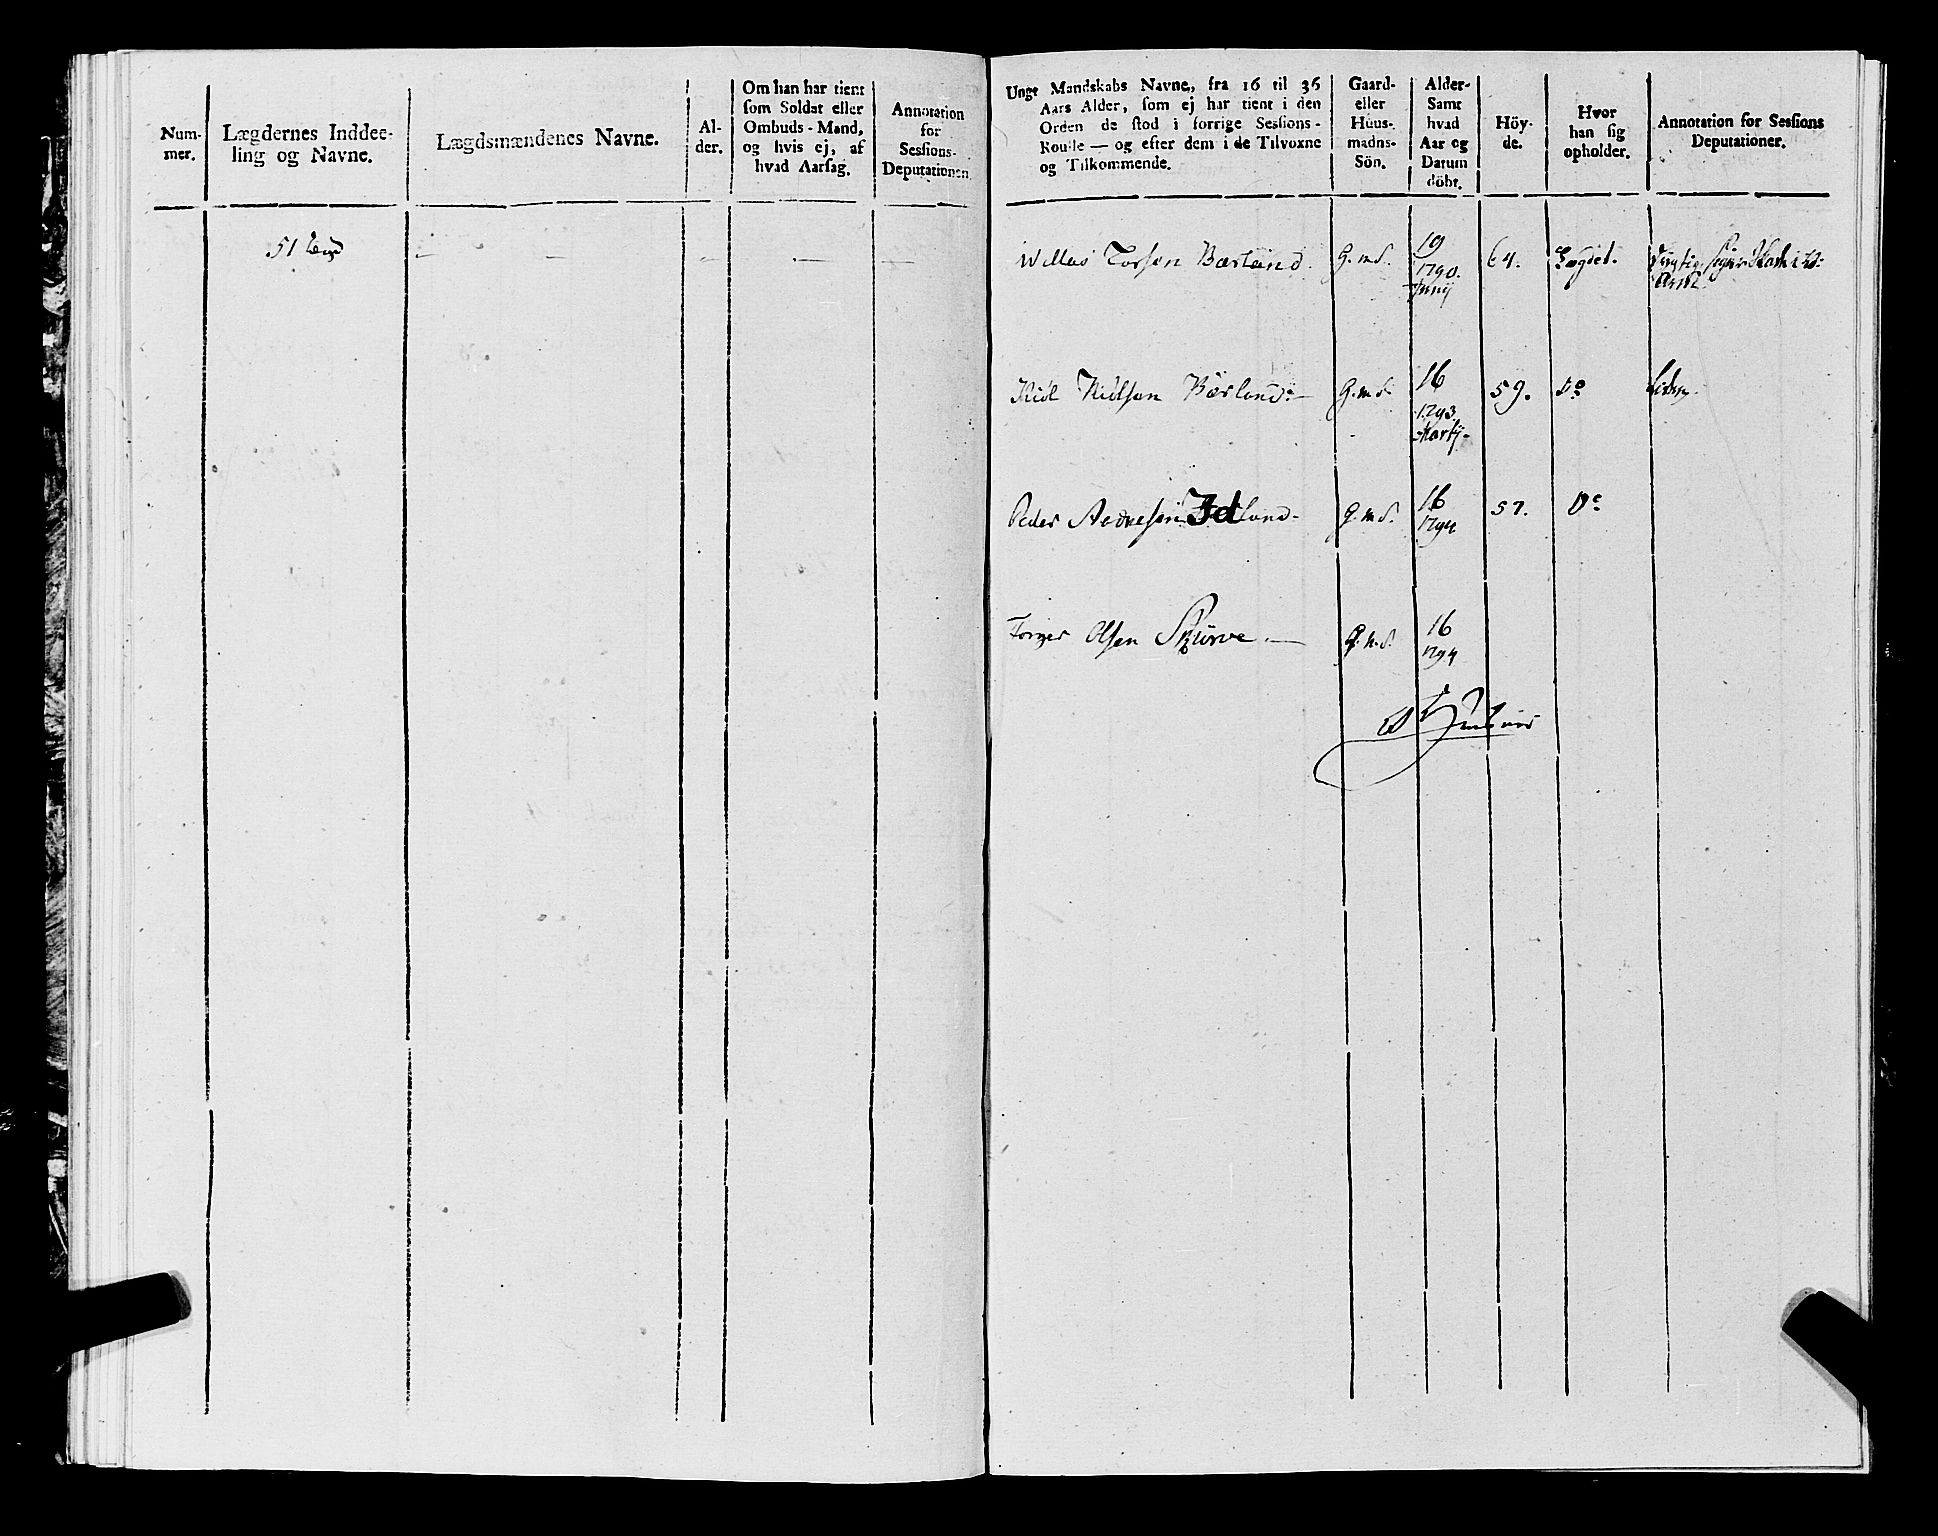 Num-
mer.
Lægdernes Inddee-
ling og Navne.
Lægdsmændenes Navne.
Al-
der.
Om han har tient
som Soldat eller
Ombuds-Mand,
og hvis ej, af
hvad Aarsag.
Annotation
for
Sessions-
Deputationen
Ungt Mandskabs Navne, fra 16 til 36
Aars Alder, som ej har tient i den
Orden de stod i forrige Sessions-
Roulle — og efter dem i de Tilvoxne
og Tilkommende.
Gaard-
eller
Huus-
mands-
Sön.
Alder-
Samt
hvad
Aar og
Datum
döbt.
Höy-
de.
Hvor
han sig
opholder.
Annotation for Sessions
Deputationer.
51 Lægd
Willas Torsen Bærland. G.m.S. 19 64. Lægdet.
1790.
Junij
Kiöl Kiölsen Bærland.— G.m.S. 16 59. Do
1793.
Martij.
Peder Andresen Jdland- G.m.S. 16 57. Do
1794
Torger Olsen Skurve.— G.m.S. 16
1794